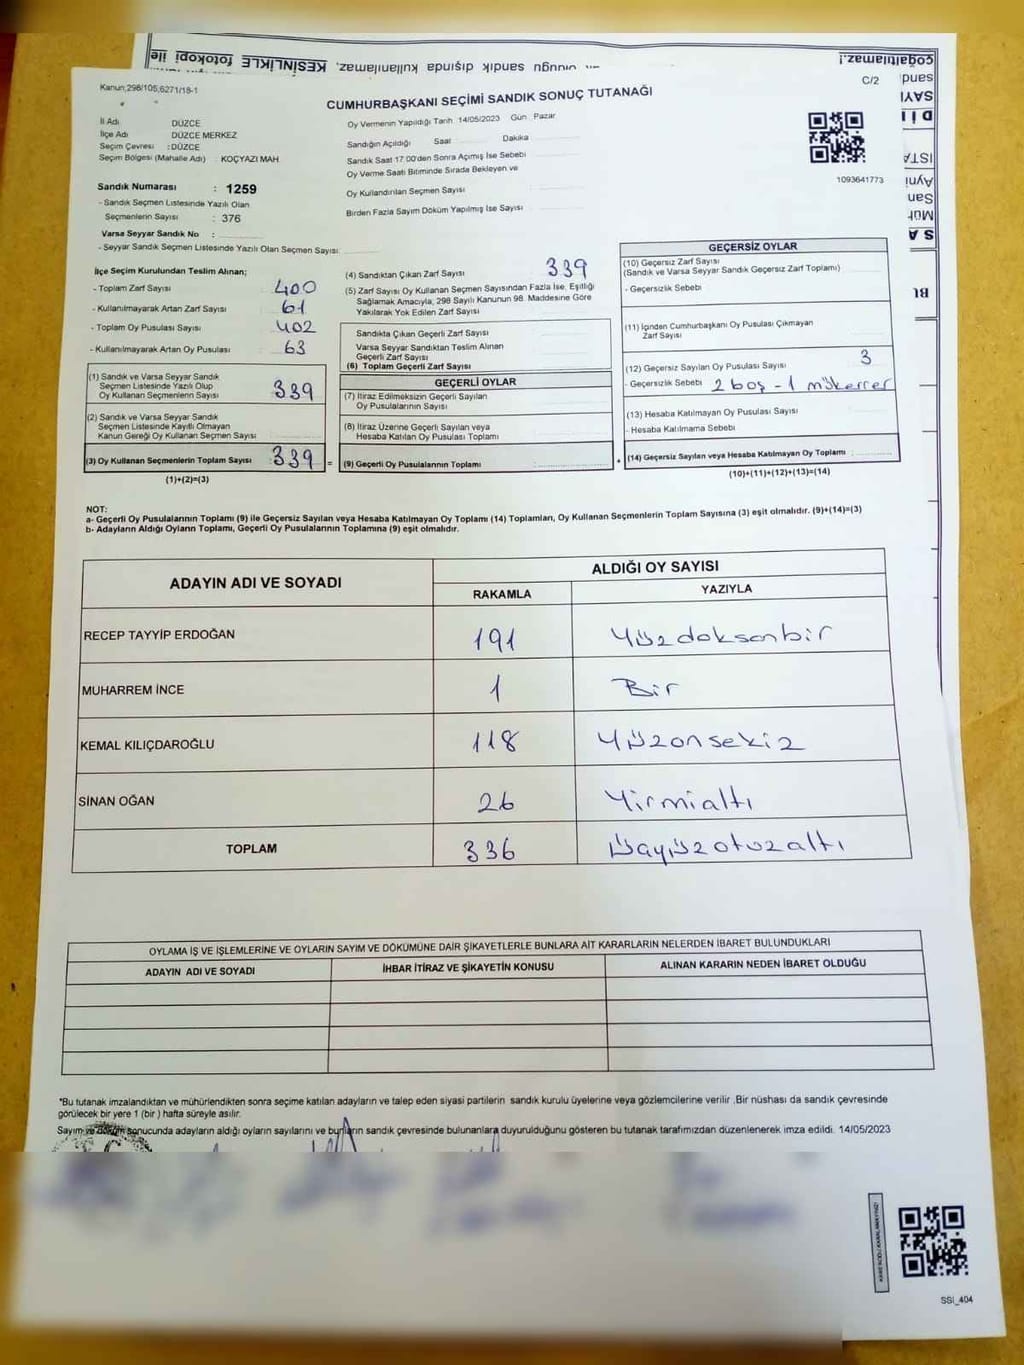 çoğaltılamaz.!
olduğu sandık dışında kullanılamaz, KESİNLİKLE fotokopi ile
Kanun;298/105,6271/18-1
C/2
CUMHURBAŞKANI SEÇİMİ SANDIK SONUÇ TUTANAĞI
İl Adı DÜZCE
İlçe Adı DÜZCE MERKEZ
Seçim Çevresi :DÜZCE
Seçim Bölgesi (Mahalle Adı) : KOÇYAZI MAH.
Sandık Numarası : 1259
- Sandık Seçmen Listesinde Yazılı Olan
Seçmenlerin Sayısı : 376
Varsa Seyyar Sandık No :
- Seyyar Sandık Seçmen Listesinde Yazılı Olan Seçmen Sayısı:
Oy Vermenin Yapıldığı Tarih 14/05/2023 Gün Pazar
Sandığın Açıldığı Saat Dakika
Sandık Saat 17:00'den Sonra Açılmış İse Sebebi
Oy Verme Saati Bitiminde Sırada Bekleyen ve
Oy Kullandırılan Seçmen Sayısı
Birden Fazla Sayım Döküm Yapılmış İse Sayısı
1093641773
İlçe Seçim Kurulundan Teslim Alınan;
- Toplam Zarf Sayısı 400
- Kullanılmayarak Artan Zarf Sayısı 61
- Toplam Oy Pusulası Sayısı 402
- Kullanılmayarak Artan Oy Pusulası 63
(1) Sandık ve Varsa Seyyar Sandık
Seçmen Listesinde Yazılı Olup
Oy Kullanan Seçmenlerin Sayısı 339
(2) Sandık ve Varsa Seyyar Sandık
Seçmen Listesinde Kayıtlı Olmayan
Kanun Gereği Oy Kullanan Seçmen Sayısı
(3) Oy Kullanan Seçmenlerin Toplam Sayısı :339 =
(1)+(2)=(3)
(4) Sandıktan Çıkan Zarf Sayısı 339
(5) Zarf Sayısı Oy Kullanan Seçmen Sayısından Fazla İse, Eşitliği
Sağlamak Amacıyla, 298 Sayılı Kanunun 98. Maddesine Göre
Yakılarak Yok Edilen Zarf Sayısı
Sandıkta Çıkan Geçerli Zarf Sayısı
Varsa Seyyar Sandıktan Teslim Alınan
Geçerli Zarf Sayısı
(6) Toplam Geçerli Zarf Sayısı
GEÇERLİ OYLAR
(7) İtiraz Edilmeksizin Geçerli Sayılan
Oy Pusulalarının Sayısı
(8) İtiraz Üzerine Geçerli Sayılan veya
Hesaba Katılan Oy Pusulası Toplamı
(9) Geçerli Oy Pusulalarının Toplamı : +
GEÇERSİZ OYLAR
(10) Geçersiz Zarf Sayısı
(Sandık ve Varsa Seyyar Sandık Geçersiz Zarf Toplamı)
- Geçersizlik Sebebi
(11) İçinden Cumhurbaşkanı Oy Pusulası Çıkmayan
Zarf Sayısı
(12) Geçersiz Sayılan Oy Pusulası Sayısı 3
- Geçersizlik Sebebi 2 boş - 1 mükerrer
(13) Hesaba Katılmayan Oy Pusulası Sayısı
- Hesaba Katılmama Sebebi
(14) Geçersiz Sayılan veya Hesaba Katılmayan Oy Toplamı :
(10)+(11)+(12)+(13)=(14)
NOT:
a- Geçerli Oy Pusulalarının Toplamı (9) ile Geçersiz Sayılan veya Hesaba Katılmayan Oy Toplamı (14) Toplamları, Oy Kullanan Seçmenlerin Toplam Sayısına (3) eşit olmalıdır. (9)+(14)=(3)
b- Adayların Aldığı Oyların Toplamı, Geçerli Oy Pusulalarının Toplamına (9) eşit olmalıdır.
ADAYIN ADI VE SOYADI ALDIĞI OY SAYISI
RAKAMLA YAZIYLA
RECEP TAYYİP ERDOĞAN 191 Yüzdoksanbir
MUHARREM İNCE 1 Bir
KEMAL KILIÇDAROĞLU 118 Yüzonsekiz
SİNAN OĞAN 26 Yirmialtı
TOPLAM 336 üçyüzotuzaltı
OYLAMA İŞ VE İŞLEMLERİNE VE OYLARIN SAYIM VE DÖKÜMÜNE DAİR ŞİKAYETLERLE BUNLARA AİT KARARLARIN NELERDEN İBARET BULUNDUKLARI
ADAYIN ADI VE SOYADI İHBAR İTİRAZ VE ŞİKAYETİN KONUSU ALINAN KARARIN NEDEN İBARET OLDUĞU
*Bu tutanak imzalandıktan ve mühürlendikten sonra seçime katılan adayların ve talep eden siyasi partilerin sandık kurulu üyelerine veya gözlemcilerine verilir .Bir nüshası da sandık çevresinde
görülecek bir yere 1 (bir ) hafta süreyle asılır.
Sayım ve döküm sonucunda adayların aldığı oyların sayılarını ve bunların sandık çevresinde bulunanlara duyurulduğunu gösteren bu tutanak tarafımızdan düzenlenerek imza edildi. 14/05/2023
KAREKODU KARALAMAYINIZ!
SSİ_404